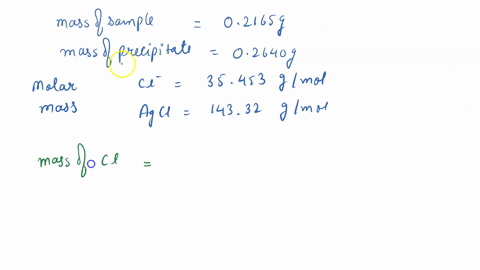 mass of sample = 0.2165g
mass of precipitate = 0.2640g
Molar mass Cl⁻ = 35.453 g/mol
AgCl = 143.32 g/mol
mass of Cl =